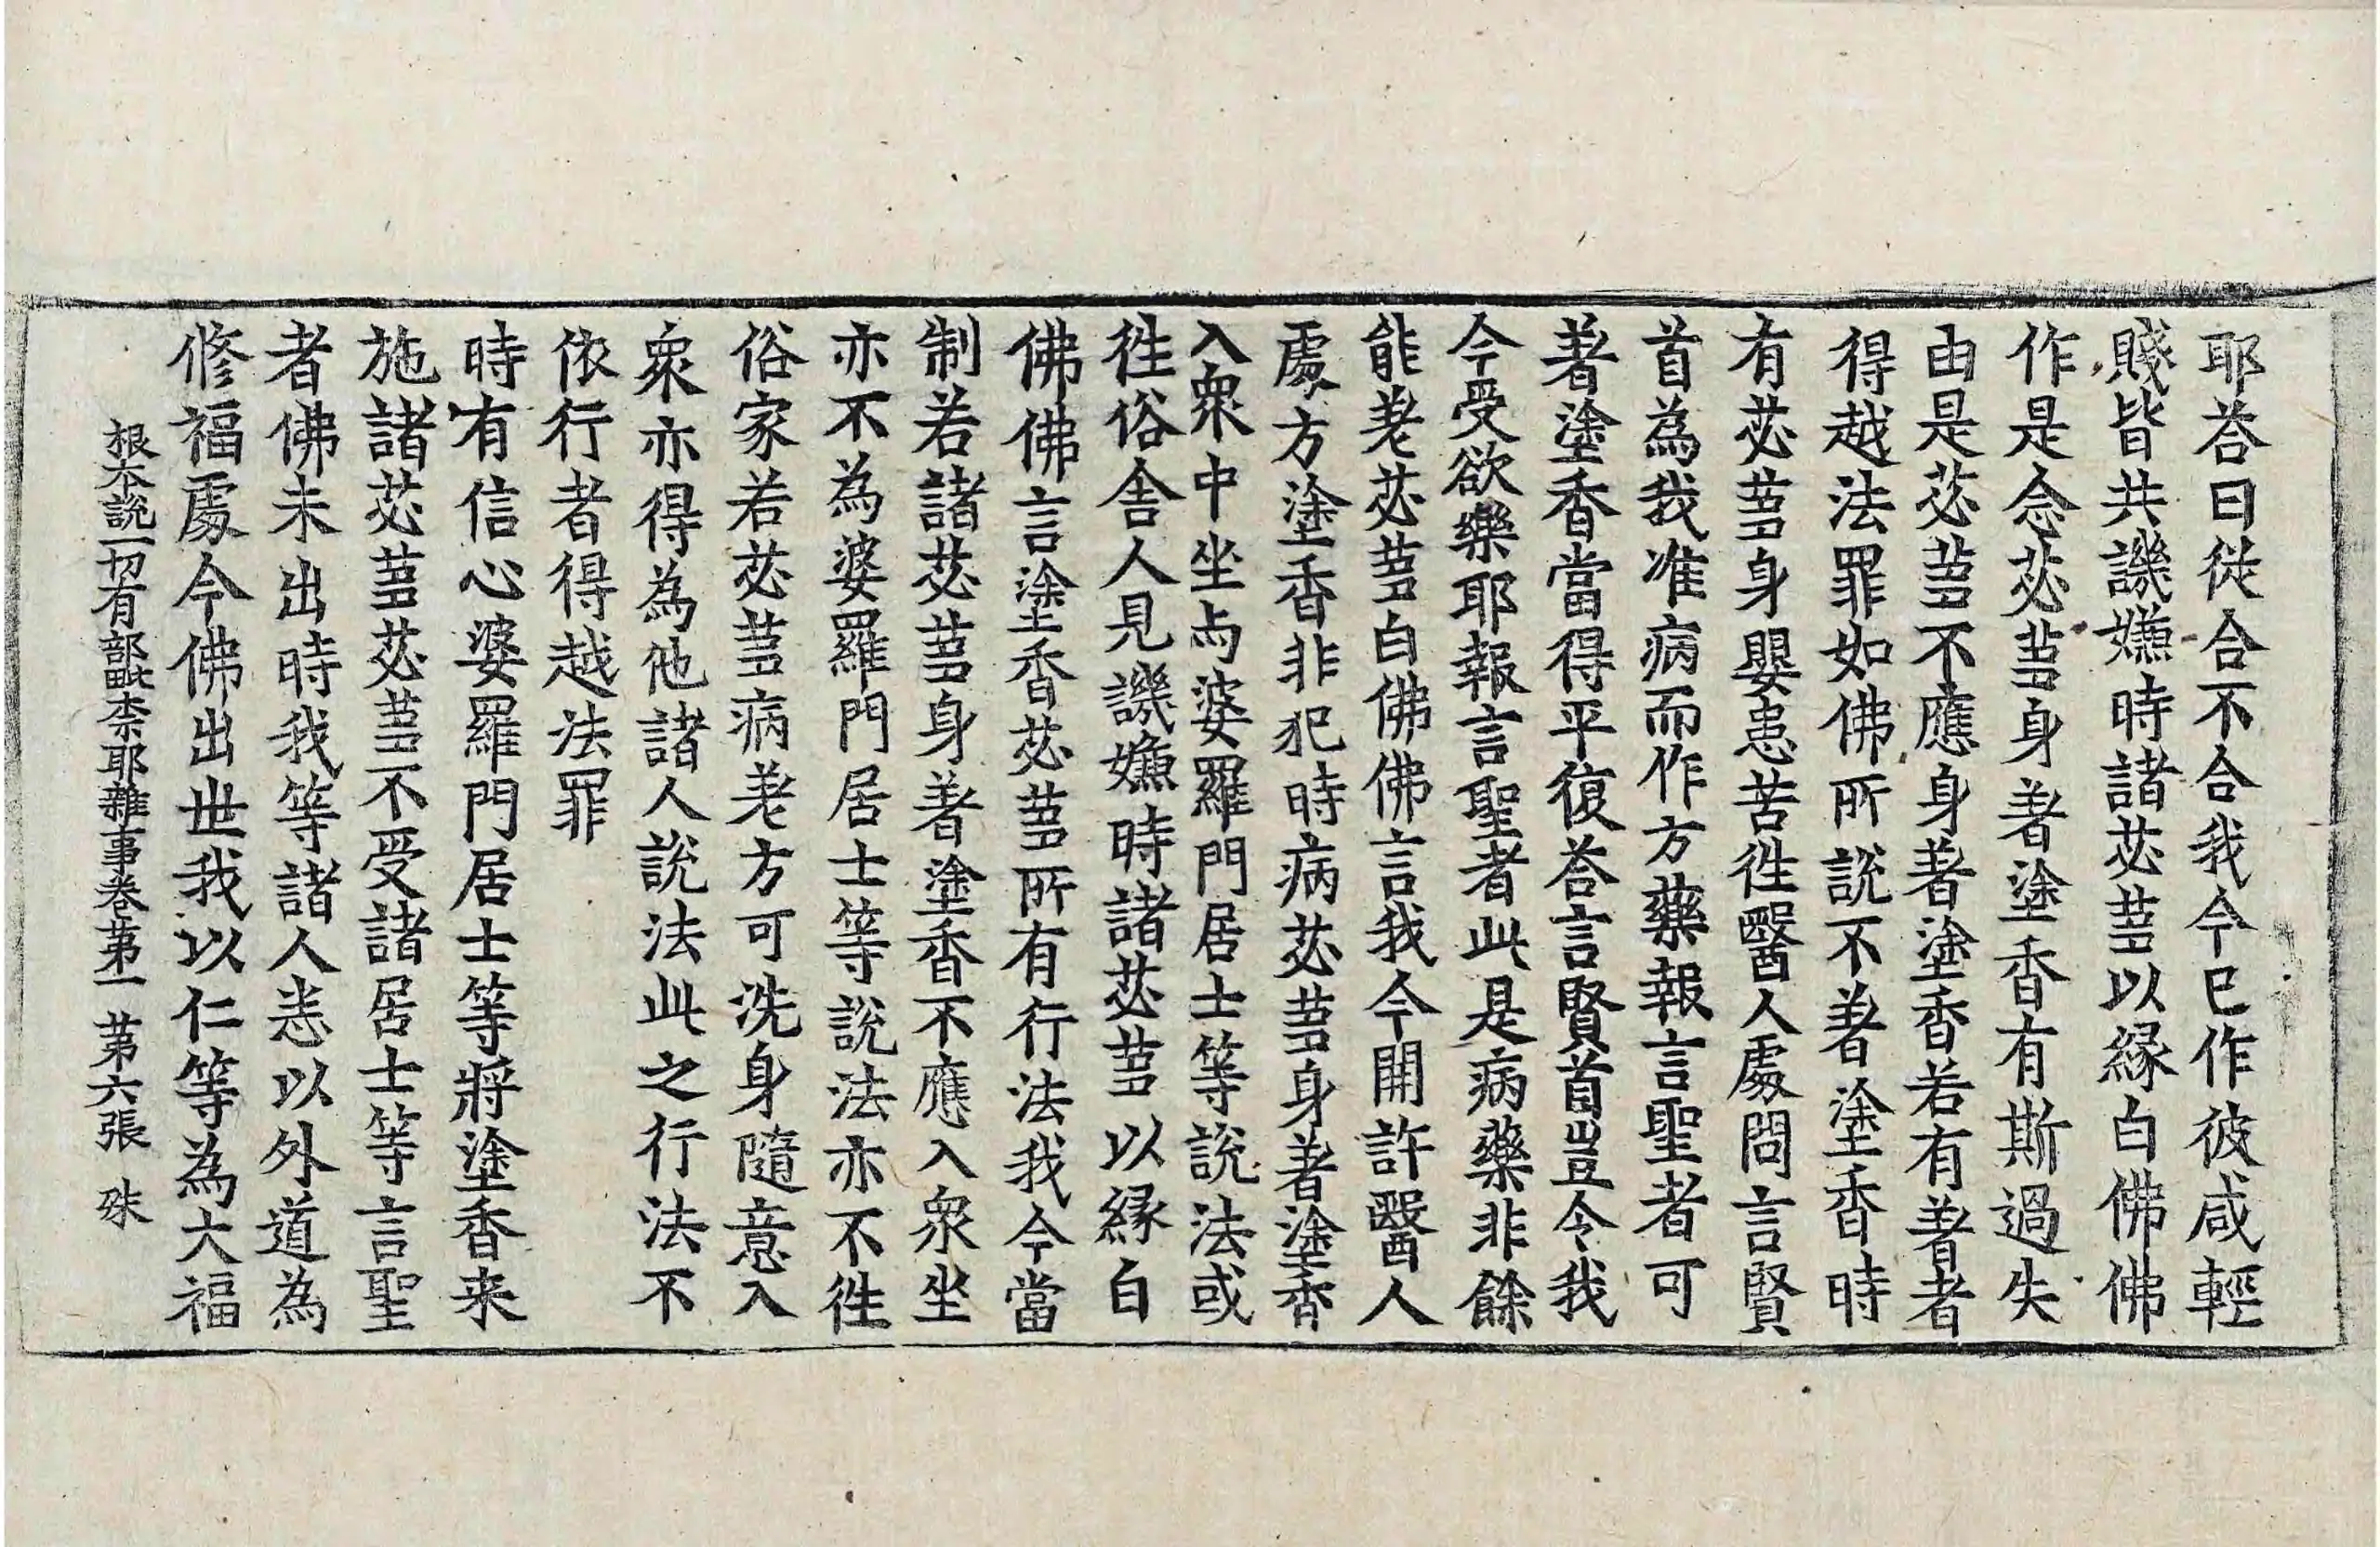 耶荅曰從合不合我今已作彼咸輕
賤皆共譏嫌時諸苾蒭以緣白佛佛
作是念苾蒭身著塗香有斯過失
由是苾蒭不應身著塗香若有著者
得越法罪如佛所說不著塗香時
有苾蒭身嬰患苦徃醫人處問言賢
首為我准病而作方藥報言聖者可
著塗香當得平復荅言賢首豈令我
今受欲樂耶報言聖者此是病藥非餘
能老苾蒭白佛佛言我今開許醫人
處方塗香非犯時病苾蒭身著塗香
入衆中坐与婆羅門居士等說法或
徃俗舍人見譏嫌時諸苾蒭以緣白
佛佛言塗香苾蒭所有行法我今當
制若諸苾蒭身著塗香不應入衆坐
亦不為婆羅門居士等說法亦不徃
俗家若苾蒭病老方可洗身隨意入
衆亦得為他諸人說法此之行法不
依行者得越法罪
時有信心婆羅門居士等將塗香来
施諸苾蒭苾蒭不受諸居士等言聖
者佛未出時我等諸人恙以外道為
修福處今佛出世我以仁等為大福
根本說一切有部毗柰耶雜事卷苐一　苐六張　殊